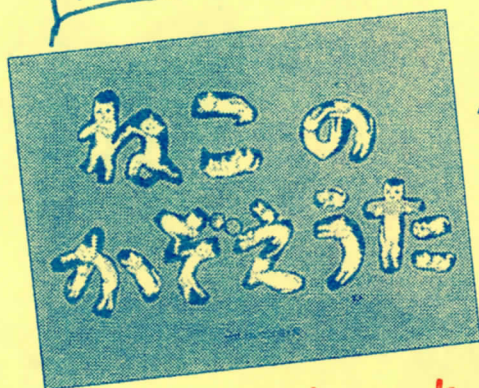 ねこの
かぞえうた